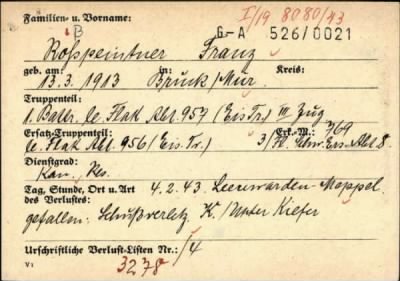 I/19 8080/43
Familien- u. Vorname:
G-A 526/0021
B
Roßpeintner Franz
geb. am: in: Kreis:
13.3.1913 Bruck/Mur
Truppenteil:
1. Battr. le. Flak Abt. 957 (Eis.Tr.) III Zug
Ersatz-Truppenteil: Erk.-M.: 769
le. Flak Abt. 956 (Eis.Tr.) 3/Fl. Schw. Ers. Abt. 8
Dienstgrad:
Kan., Res.
Tag, Stunde, Ort u. Art des Verlustes: 4.2.43. Leeuwarden-Meppel
gefallen: Schußverletz. K./Unter Kiefer
Urschriftliche Verlust-Listen Nr.: /4
V1 3278